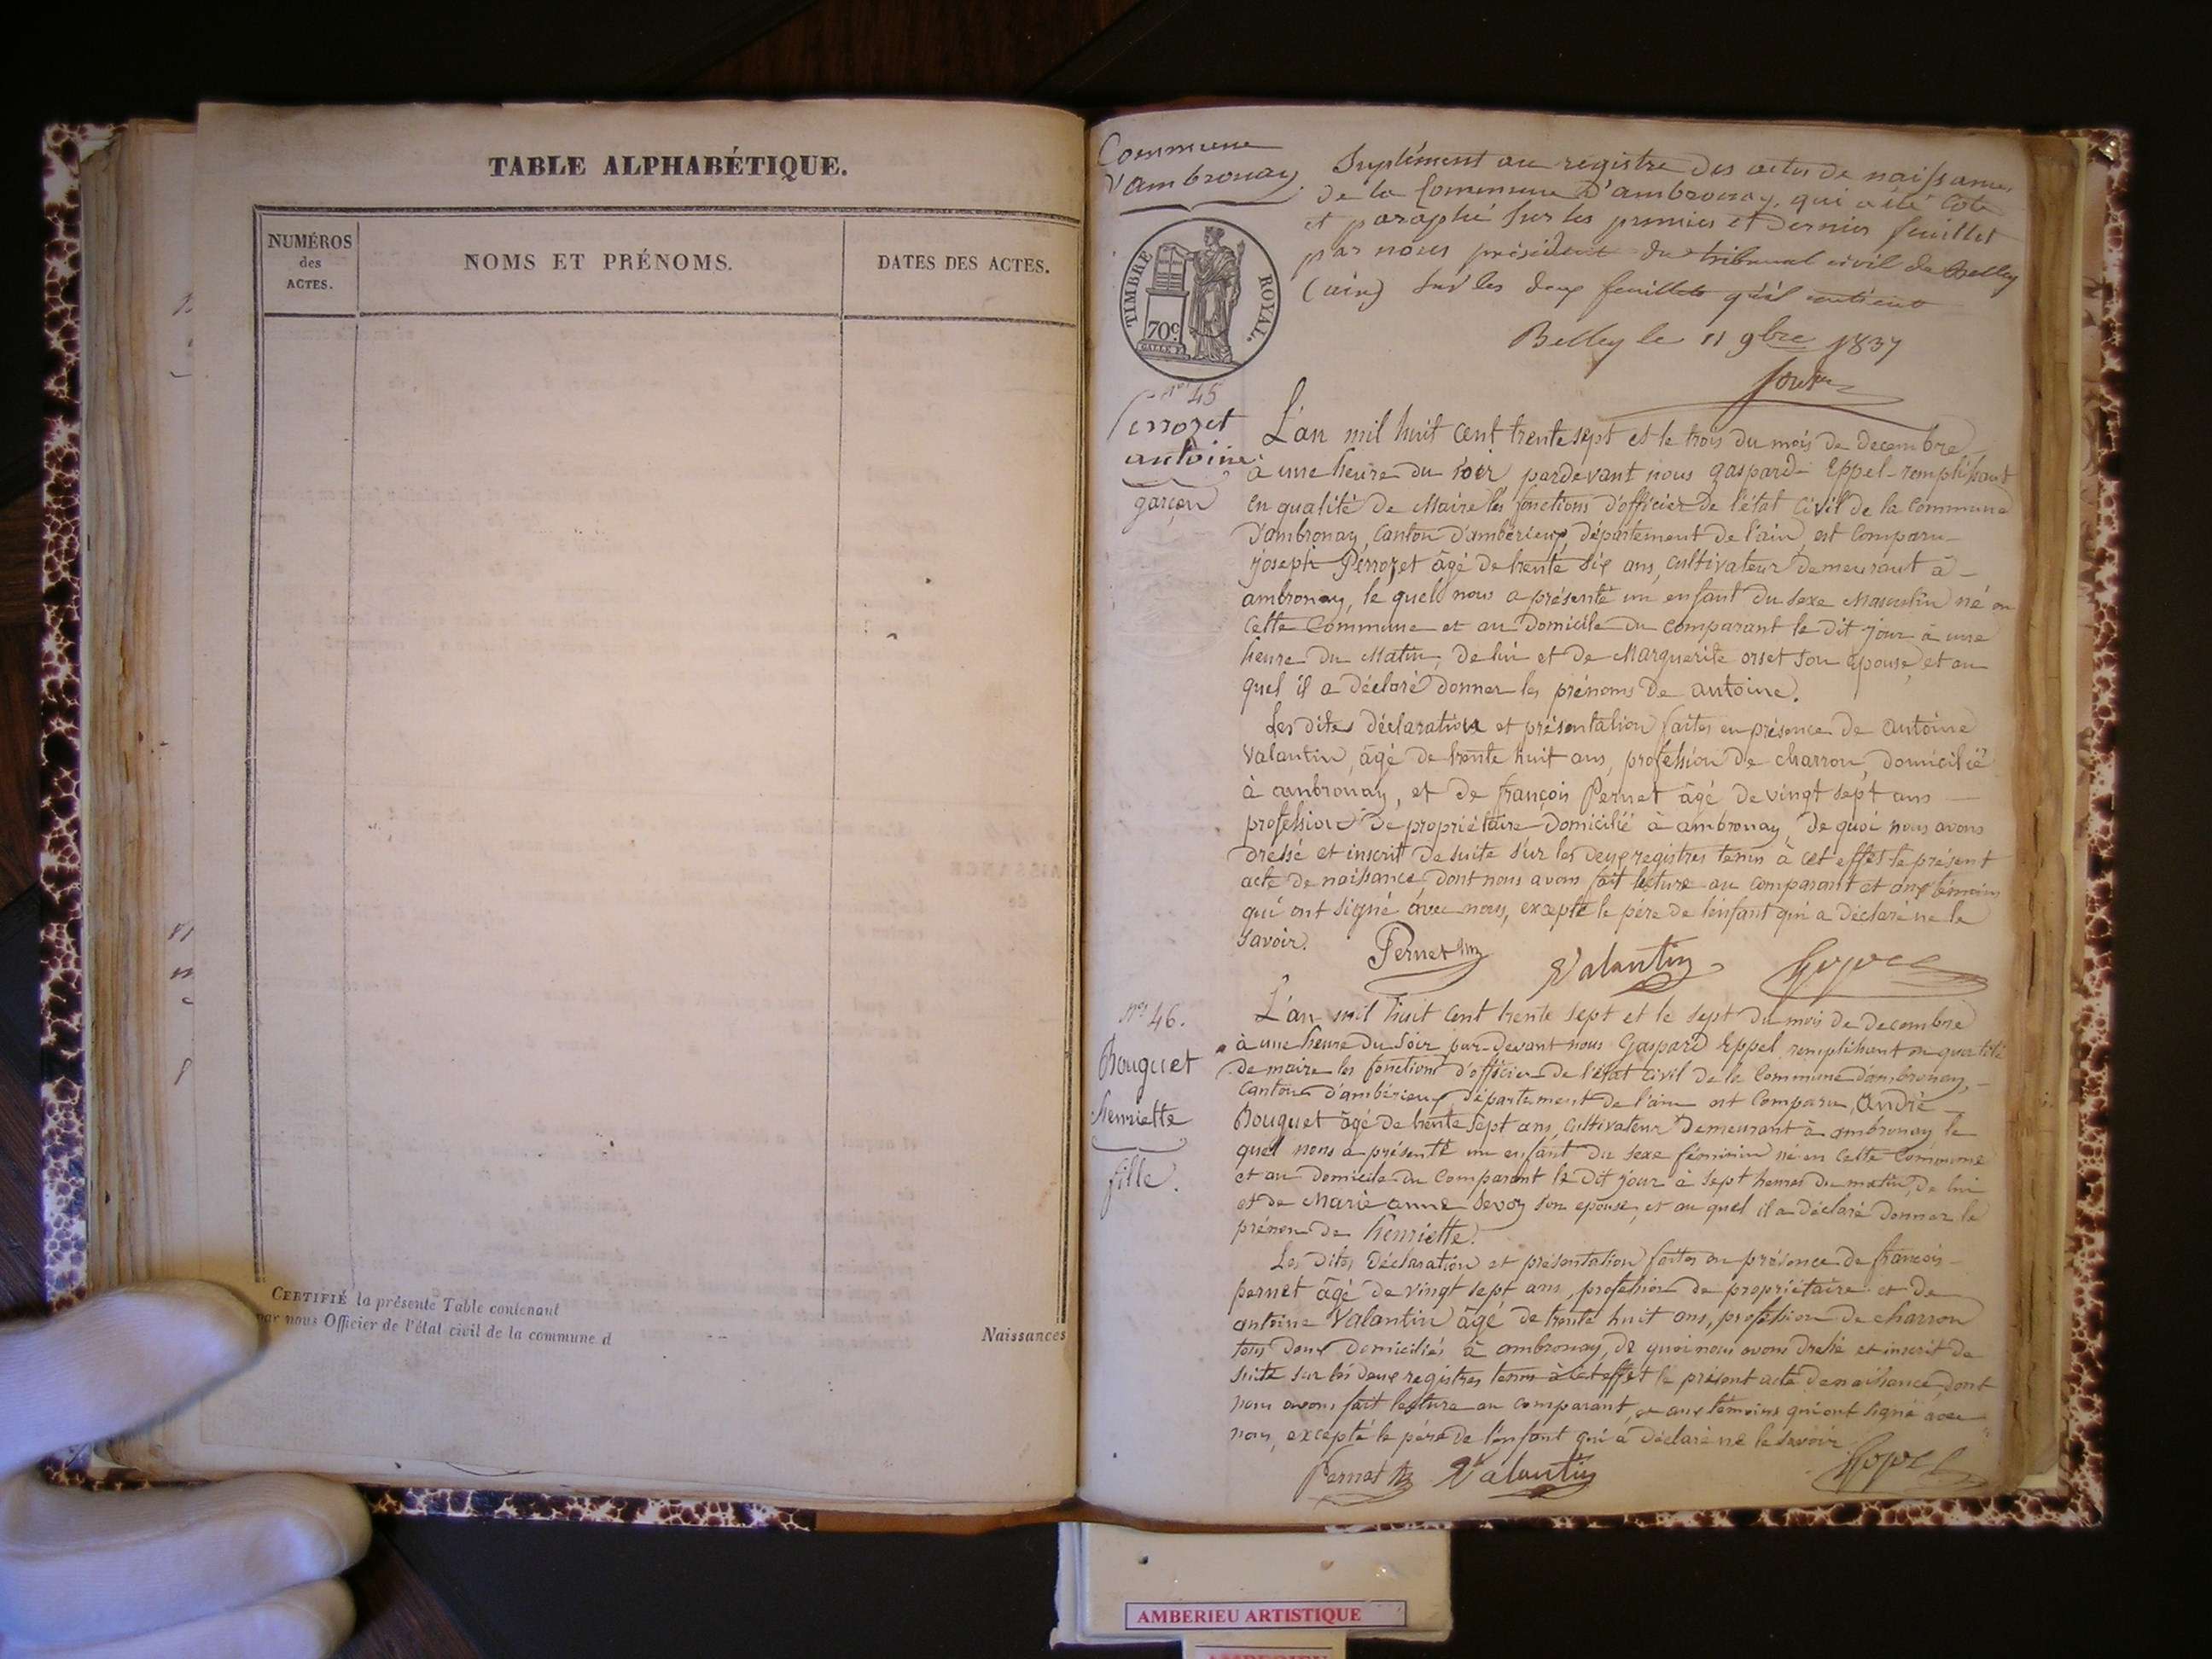 TABLE ALPHABÉTIQUE.
NUMÉROS
des
ACTES.
NOMS ET PRÉNOMS.
DATES DES ACTES.
CERTIFIÉ la présente Table contenant
par nous Officier de l'état civil de la commune d
Naissances
Commune
d'ambronay
Suplément au registre des actes de naissance
de la Commune D'ambronay, qui a été Coté
et paraphé sur les premier et Dernier feuillet
par nous président du tribunal civil de Belley
(ain) sur les deux feuillets qu'il contient
Belley le 11 9bre 1837
TIMBRE ROYAL.
70c
n° 45
Perrozet
antoine
garçon
L'an mil huit cent trente sept et le trois du mois de decembre
à une heure du soir pardevant nous gaspard Eppel remplissant
en qualité de Maire les fonctions d'officier de l'état Civil de la Commune
D'ambronay, Canton d'ambérieux, département de l'ain, est Comparu
joseph Perrozet âgé de trente six ans, cultivateur demeurant à
ambronay, le quel nous a présenté un enfant du sexe Masculin né en
cette Commune et au Domicile du comparant le dit jour à une
heure du Matin, de lui et de Marguerite orset son épouse, et au
quel il a déclaré donner les prénoms de antoine.
Les dites déclaration et présentation faites en présence de antoine
Valantin, âgé de trente huit ans, profession de charron, domicilié
à ambronay, et de françois Pernet âgé de vingt sept ans
profession de propriétaire domicilié à ambronay, de quoi nous avons
dressé et inscrit de suite sur les deux registres tenus à cet effet le présent
acte de naissance, dont nous avons fait lecture au comparant et aux témoins
qui ont signé avec nous, excepté le père de l'enfant qui a déclaré ne le
savoir.
Pernet Valantin
n° 46.
Bouquet
henriette
fille.
L'an mil huit cent trente sept et le sept du mois de decembre
à une heure du soir par-devant nous Gaspard Eppel remplissant en qualité
de maire les fonctions d'officier de l'état civil de la Commune d'ambronay,
canton d'ambérieux, département de l'ain est comparu, André
Bouquet âgé de trente sept ans, cultivateur demeurant à ambronay, le
quel nous a présenté un enfant du sexe féminin né en cette Commune
et au domicile du comparant le dit jour à sept heures du matin, de lui
et de Marie anne Sevoz son épouse, et au quel il a déclaré donner le
prénom de henriette.
Les dites déclaration et présentation faites en présence de françois
pernet âgé de vingt sept ans, profession de propriétaire et de
antoine Valantin âgé de trente huit ans, profession de charron
tous deux domiciliés à ambronay, de quoi nous avons dressé et inscrit de
suite sur les deux registres tenus à cet effet le présent acte de naissance, dont
nous avons fait lecture au comparant, et aux témoins qui ont signé avec
nous, excepté le père de l'enfant qui a déclaré ne le savoir
Pernet Valantin
AMBERIEU ARTISTIQUE